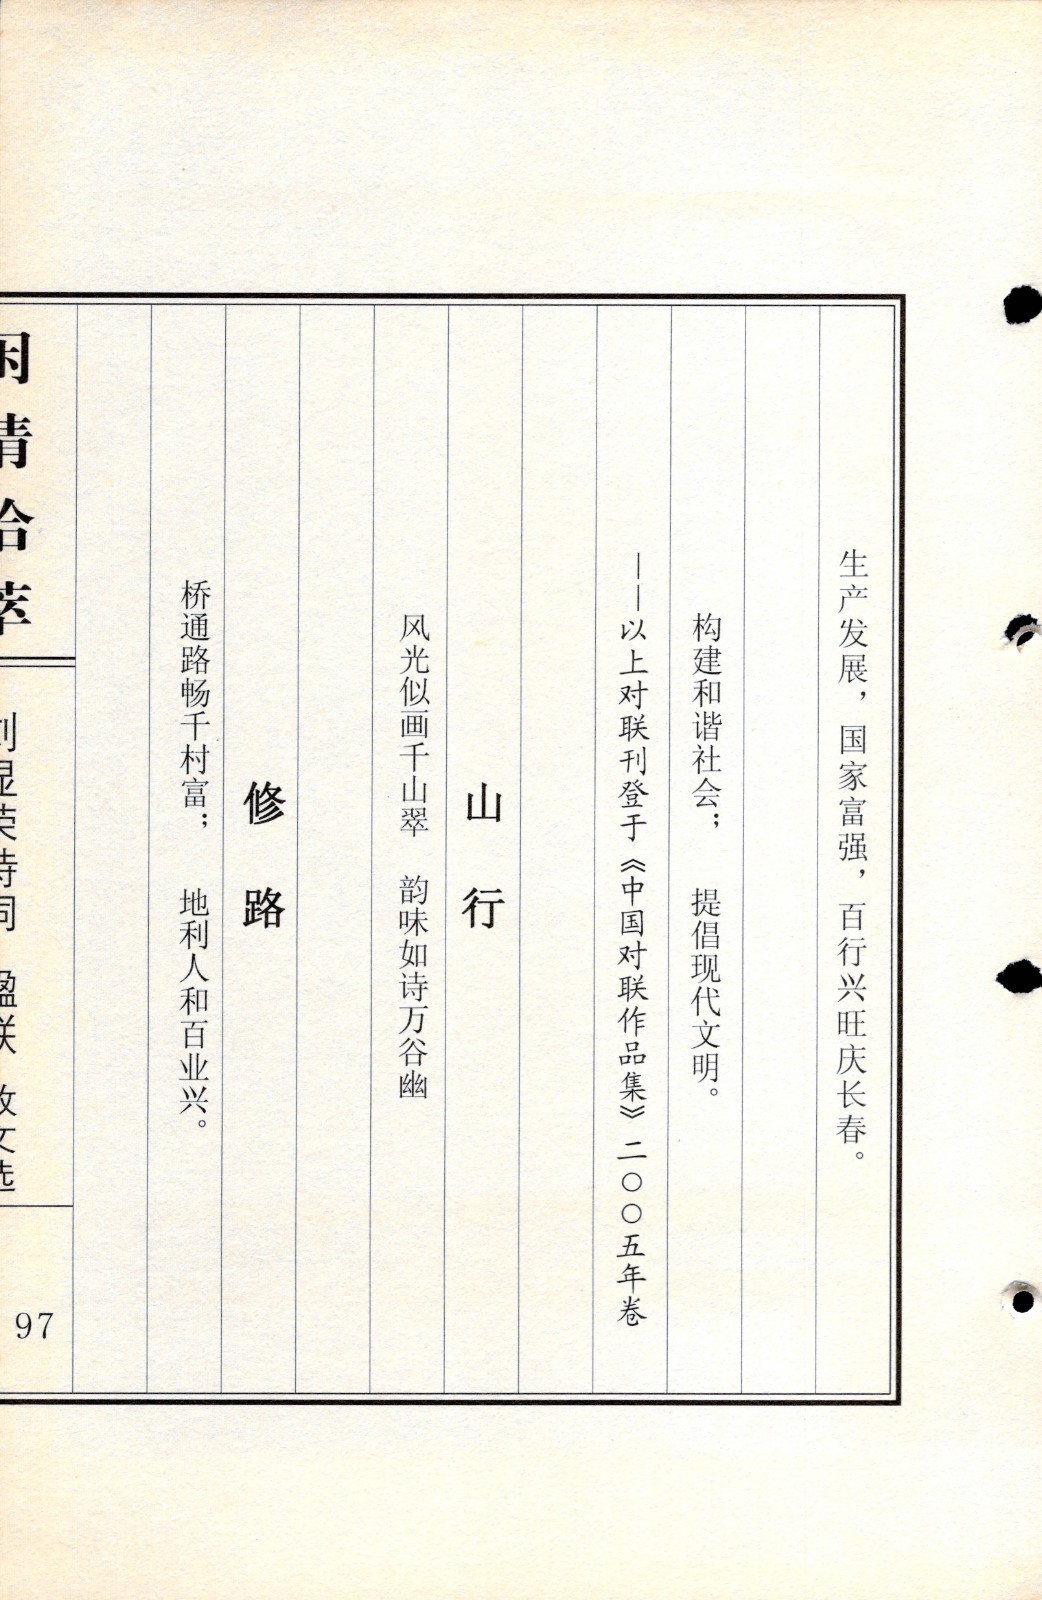 生产发展，国家富强，百行兴旺庆长春。
构建和谐社会； 提倡现代文明。
——以上对联刊登于《中国对联作品集》二〇〇五年卷
山 行
风光似画千山翠 韵味如诗万谷幽
修 路
桥通路畅千村富； 地利人和百业兴。
拾萃
刘显荣诗词 盈联 散文选
97